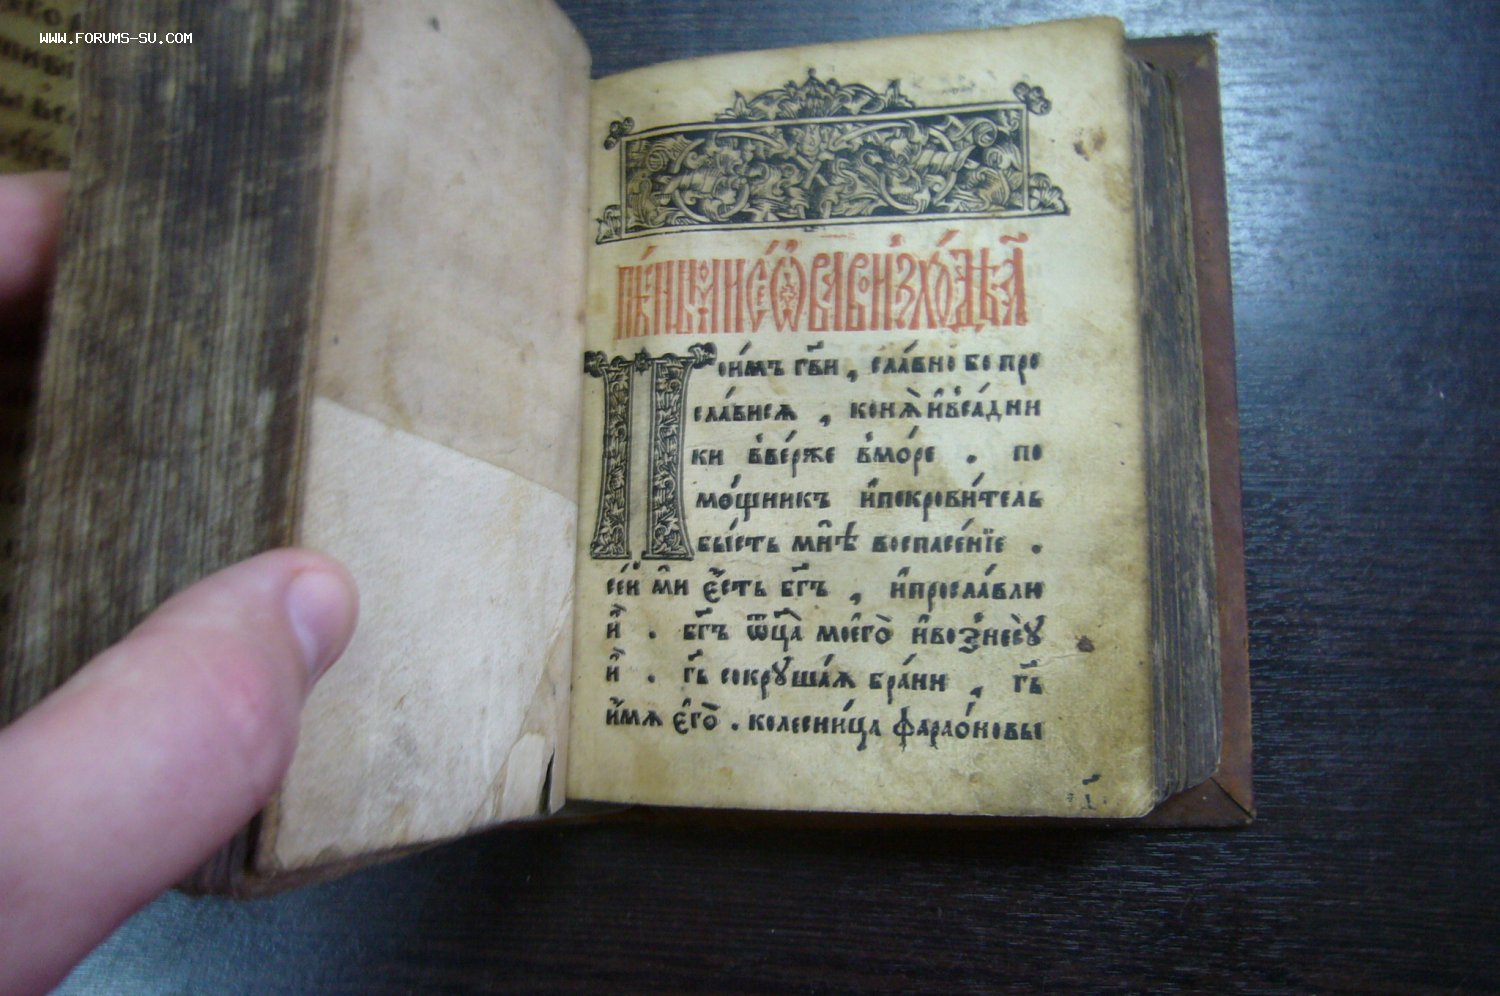 WWW.FORUMS-SU.COM
Поимъ гв҃и, сла́вно бо про
сла́вися, кон҄я и҆вса́дни
ки вве́рже вмо́ре. по
мо́щникъ и҆покрови́тель
бы́сть мнѣ̀ воспасе́нїе.
се́й мѝ е҆́сть бг҃ъ, и҆просла́влю
и҆̀. бг҃ъ ѿц҃а̀ моегѡ̀ и҆вознесꙋ̀
и҆̀. гь҃ сокрꙋша́ѧ бра́ни, гь҃
и҆́мѧ є҆гѡ̀. колесни́ца фараѡ́новы